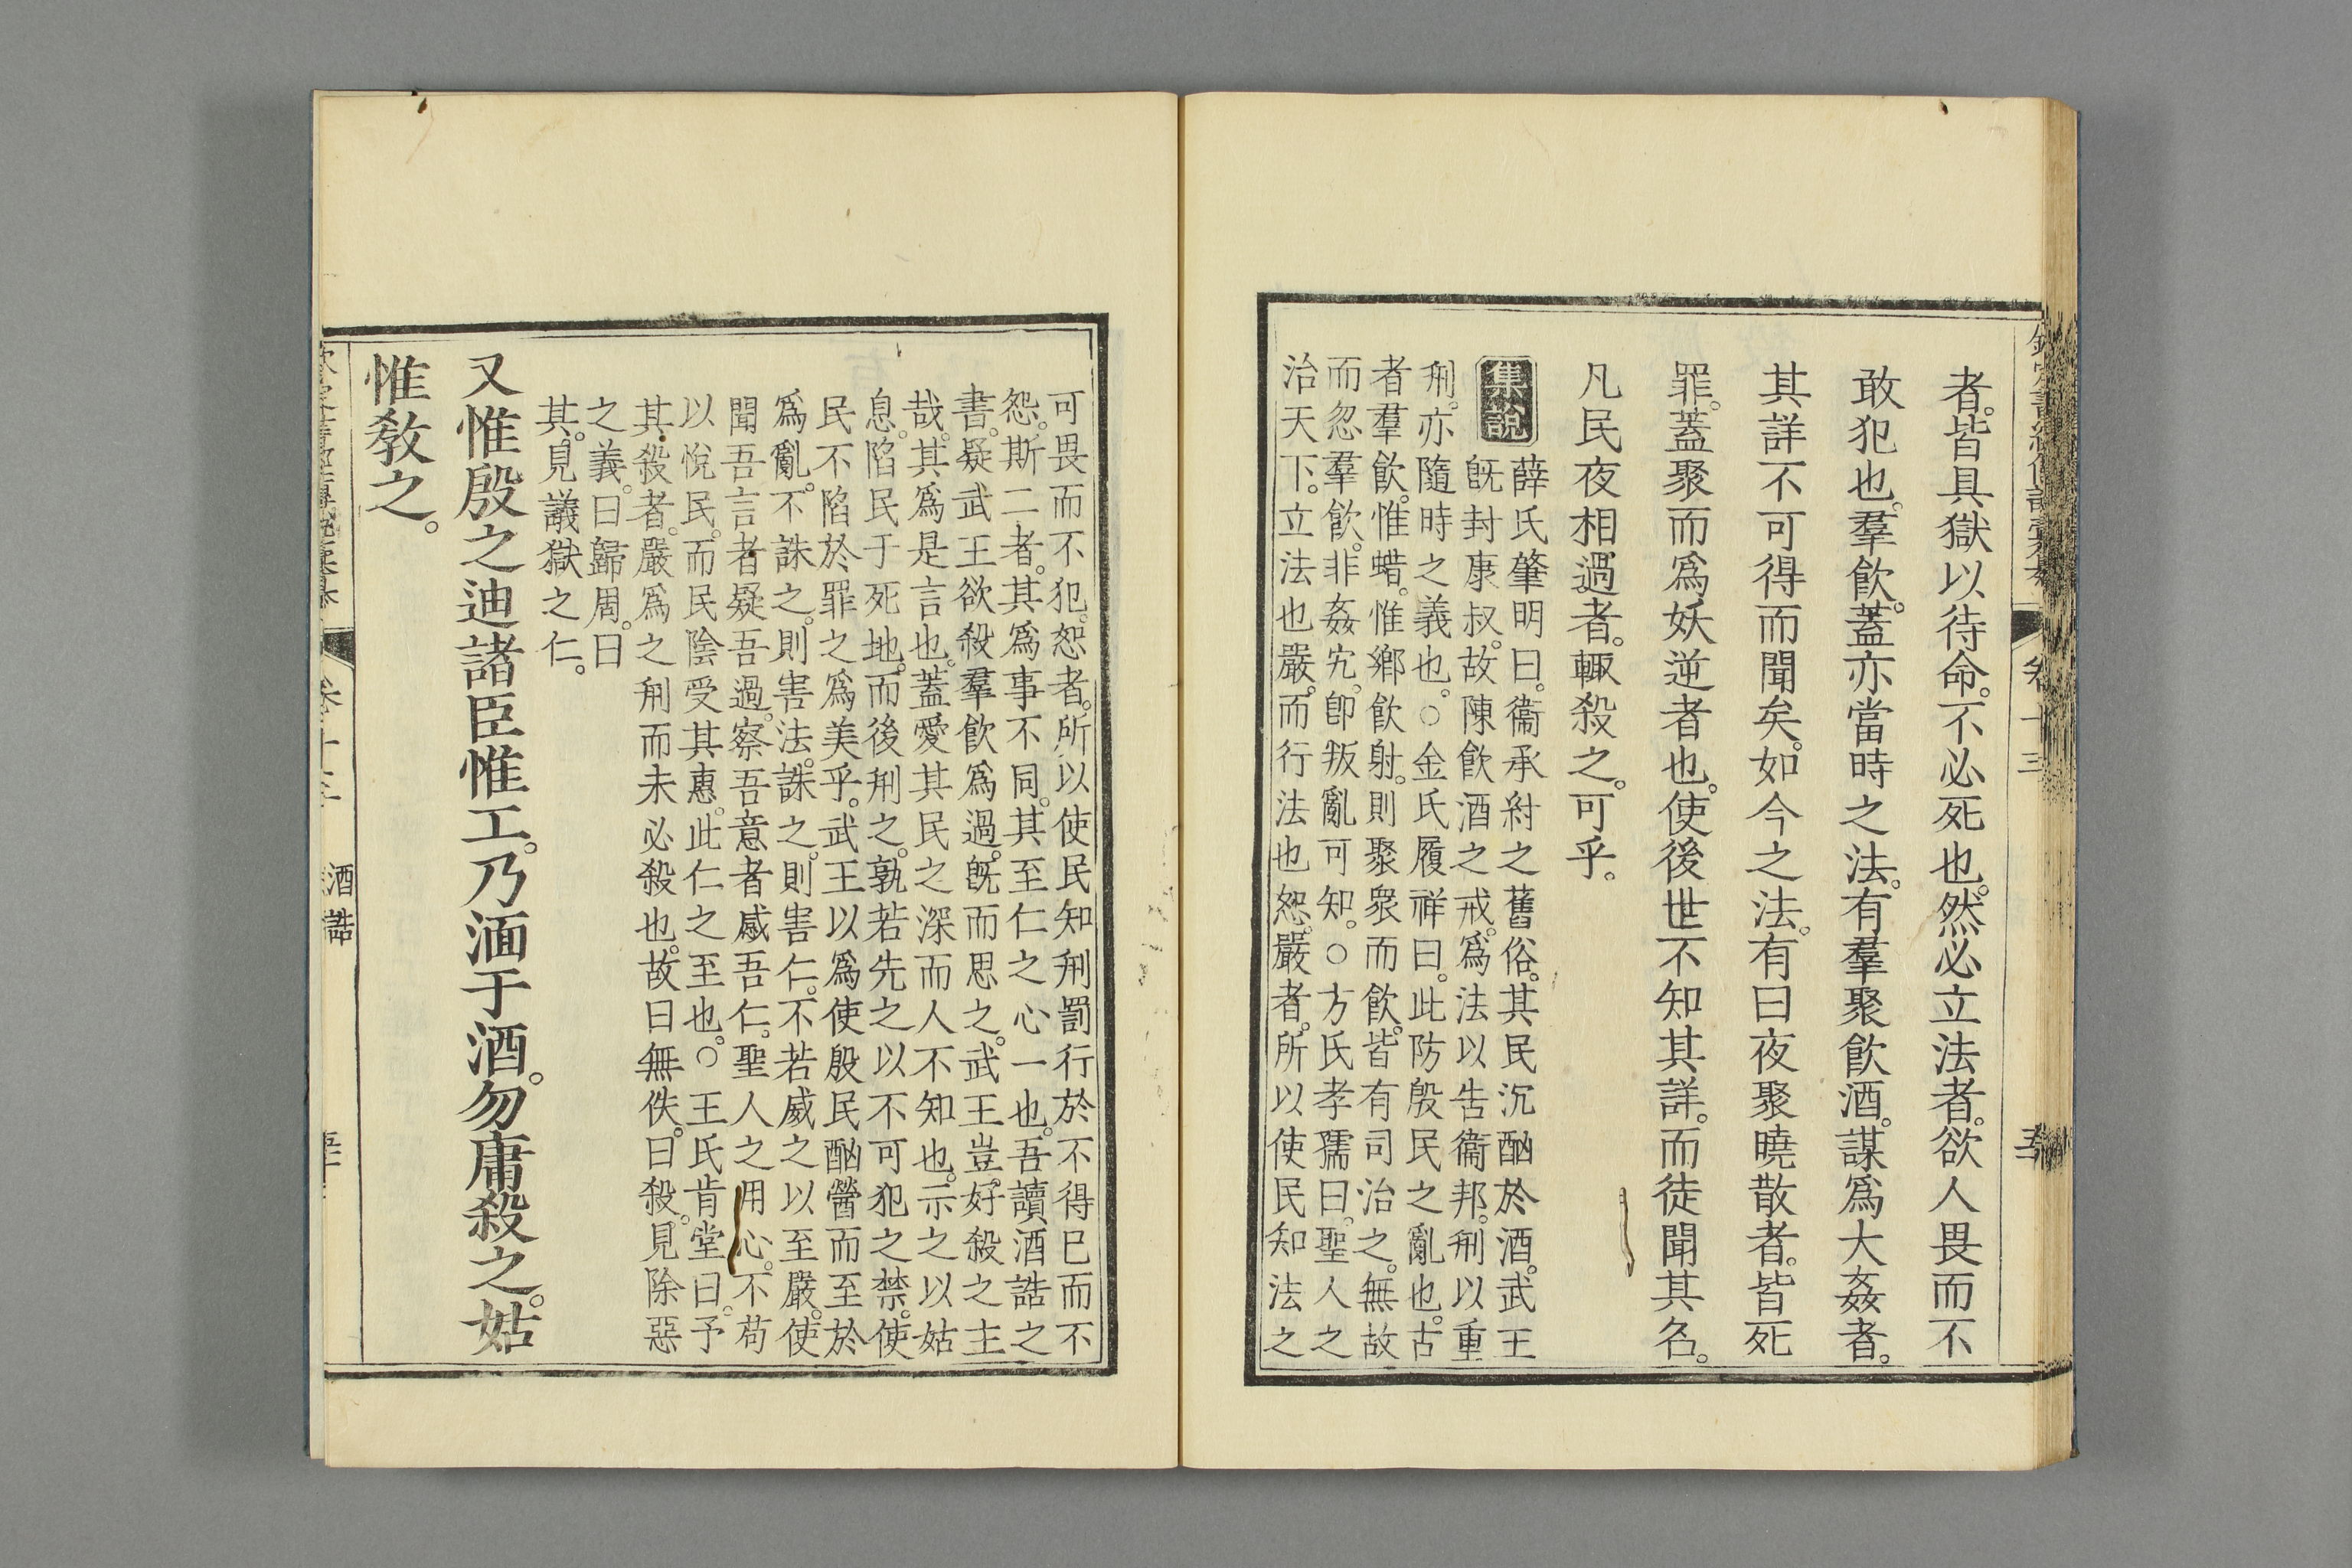 者。皆具獄以待命。不必死也。然必立法者。欲人畏而不
敢犯也。羣飮。蓋亦當時之法。有羣聚飮酒。謀爲大姦者。
其詳不可得而聞矣。如今之法。有曰夜聚曉散者。皆死
罪。蓋聚而爲妖逆者也。使後世不知其詳。而徒聞其名。
凡民夜相過者。輒殺之。可乎。
集說
薛氏肇明曰。衞承紂之舊俗。其民沉酗於酒。武王
旣封康叔。故陳飮酒之戒。爲法以吿衞邦。刑以重
刑。亦隨時之義也。○金氏履祥曰。此防殷民之亂也。古
者羣飮。惟蜡。惟鄉飮射。則聚衆而飮。皆有司治之。無故
而忽羣飮。非姦宄。卽叛亂可知。○方氏孝孺曰。聖人之
治天下。立法也嚴。而行法也恕。嚴者。所以使民知法之
可畏而不犯。恕者。所以使民知刑罰行於不得已而不
怨。斯二者。其爲事不同。其至仁之心一也。吾讀酒誥之
書。疑武王欲殺羣飮爲過。旣而思之。武王豈好殺之主
哉。其爲是言也。蓋愛其民之深而人不知也。示之以姑
息。陷民于死地。而後刑之。孰若先之以不可犯之禁。使
民不陷於罪之爲美乎。武王以爲使殷民酗醟而至於
爲亂。不誅之。則害法。誅之。則害仁。不若威之以至嚴。使
聞吾言者疑吾過。察吾意者感吾仁。聖人之用心。不苟
以悅民。而民陰受其惠。此仁之至也。○王氏肯堂曰。予
其殺者。嚴爲之刑而未必殺也。故曰無佚。曰殺。見除惡
之義。曰歸周。曰
其。見議獄之仁。
又惟殷之迪諸臣惟工。乃湎于酒。勿庸殺之。姑
惟敎之。
酒誥